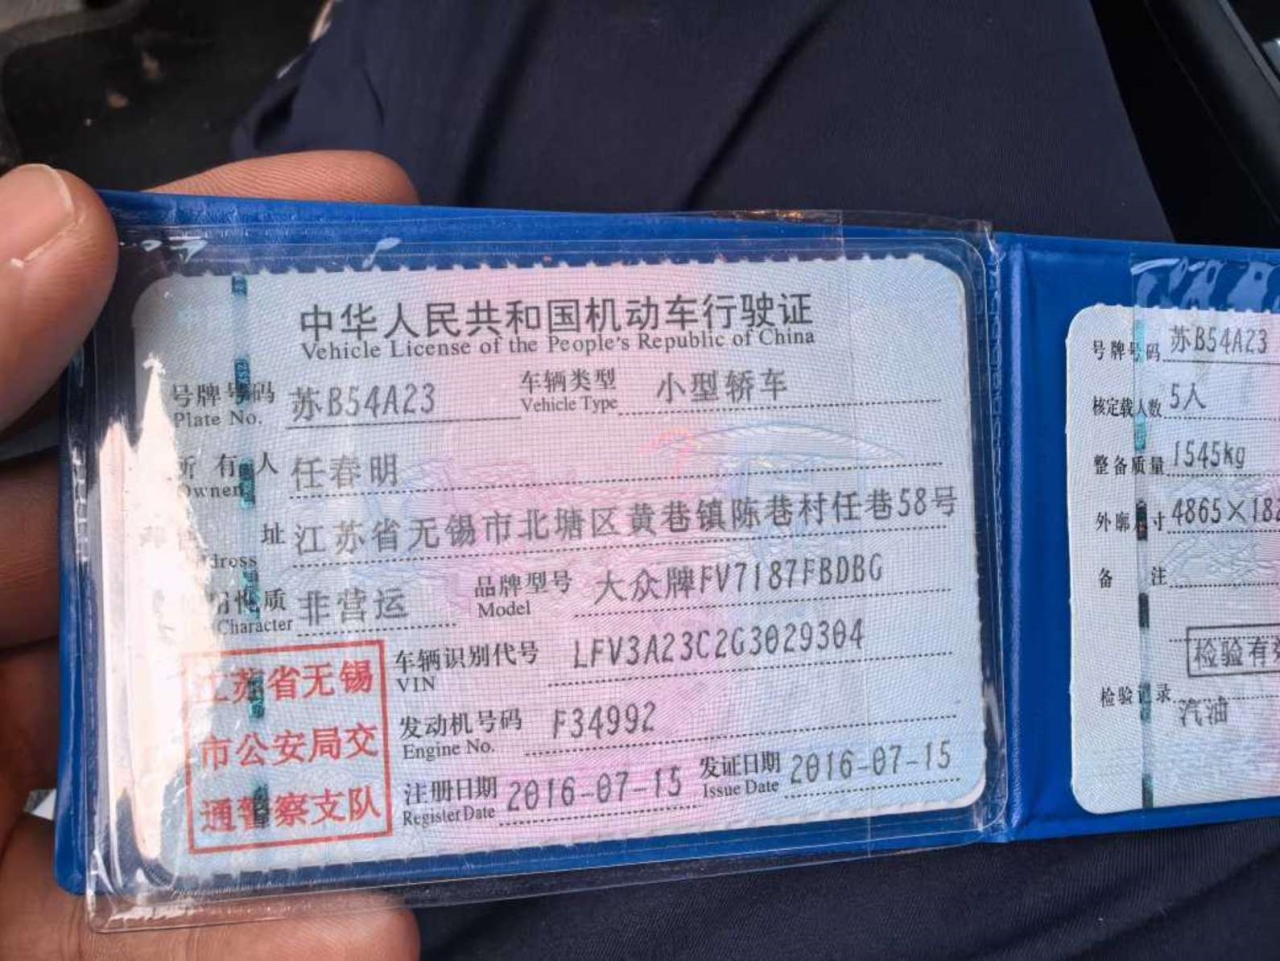 中华人民共和国机动车行驶证
Vehicle License of the People's Republic of China
号牌号码 苏B54A23 车辆类型 小型轿车
Plate No. Vehicle Type
所有人 任春明
Owner
址 江苏省无锡市北塘区黄巷镇陈巷村任巷58号
dress
用性质 非营运 品牌型号 大众牌FV7187FBDBG
Character Model
车辆识别代号 LFV3A23C2G3029304
VIN
发动机号码 F34992
Engine No.
注册日期 2016-07-15 发证日期 2016-07-15
Register Date Issue Date
江苏省无锡
市公安局交
通警察支队
号牌号码 苏B54A23
核定载人数 5人
整备质量 1545kg
外廓 寸 4865×182
备 注
检验有
检验记录
汽油